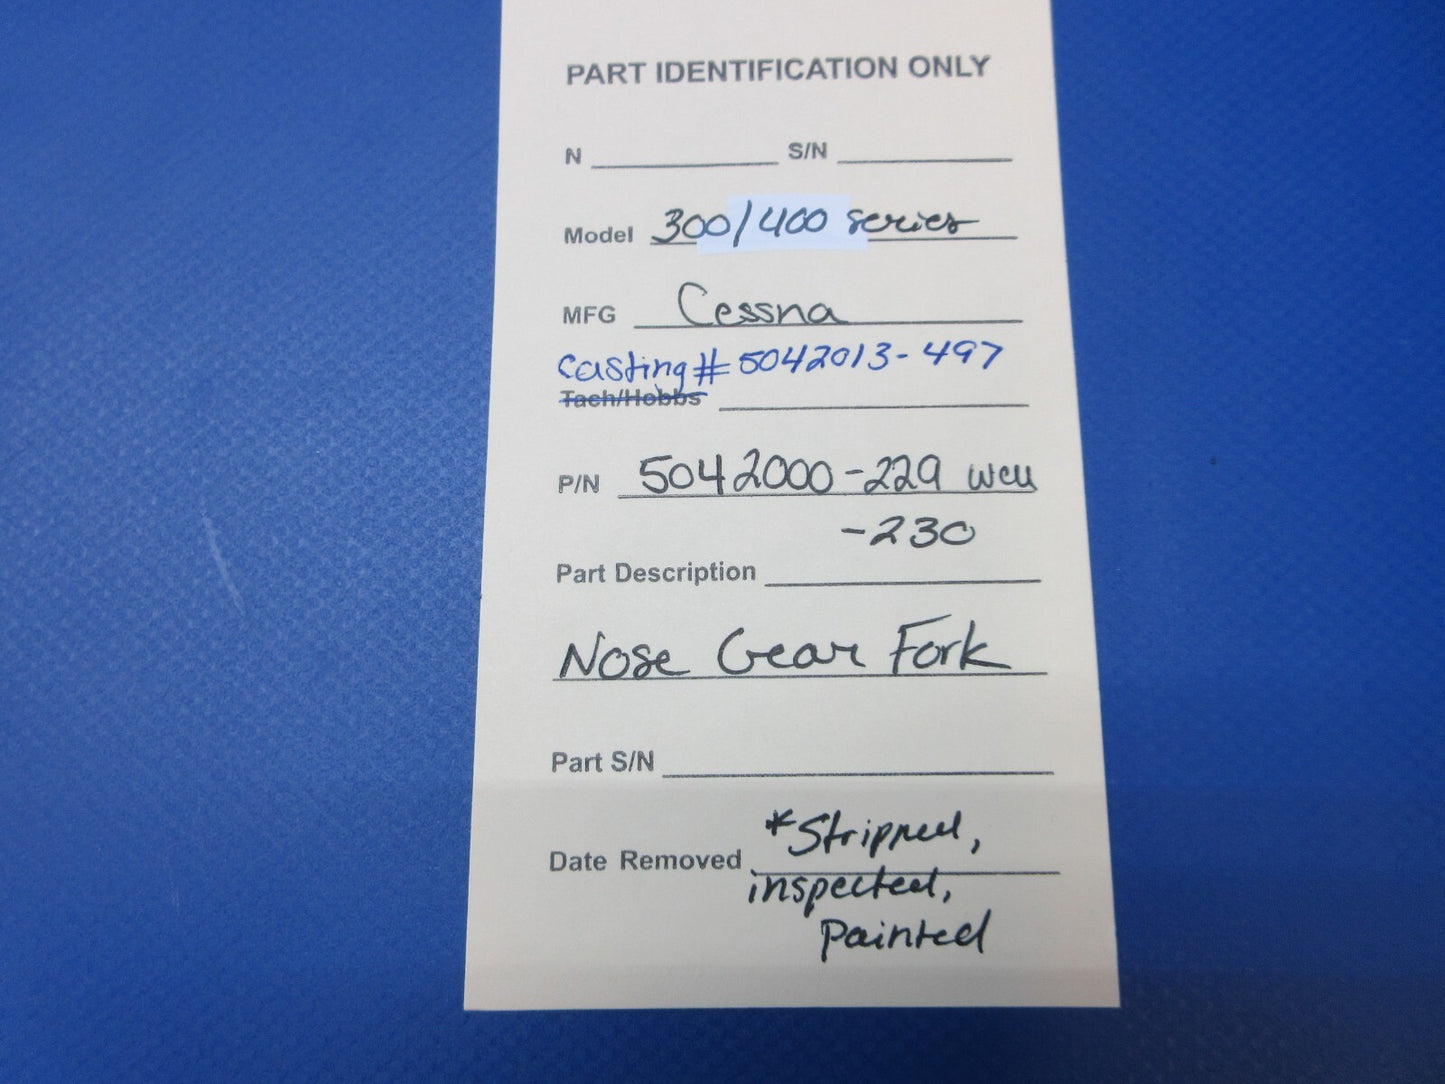 PART IDENTIFICATION ONLY
N S/N
Model 300/400 series
MFG Cessna
Casting# 5042013-497
Tach/Hobbs
P/N 5042000-229
-230
Part Description
Nose Gear Fork
Part S/N
*Stripped,
Date Removed
inspected,
Painted